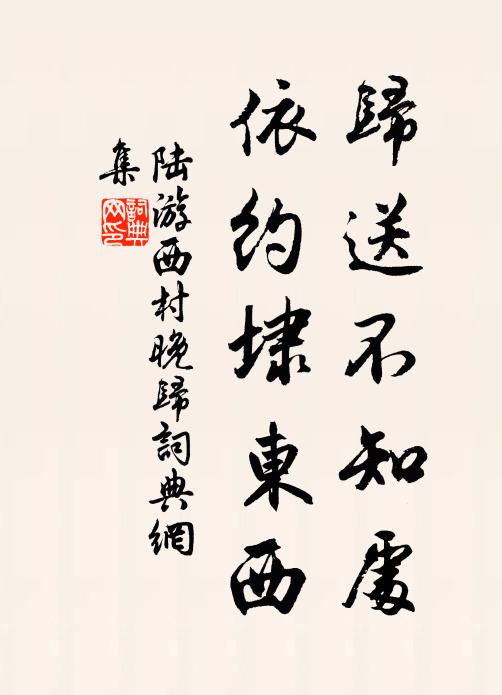 歸送不知處
依約埭東西
陆游西村晚歸詞典網
集
詞典
网印